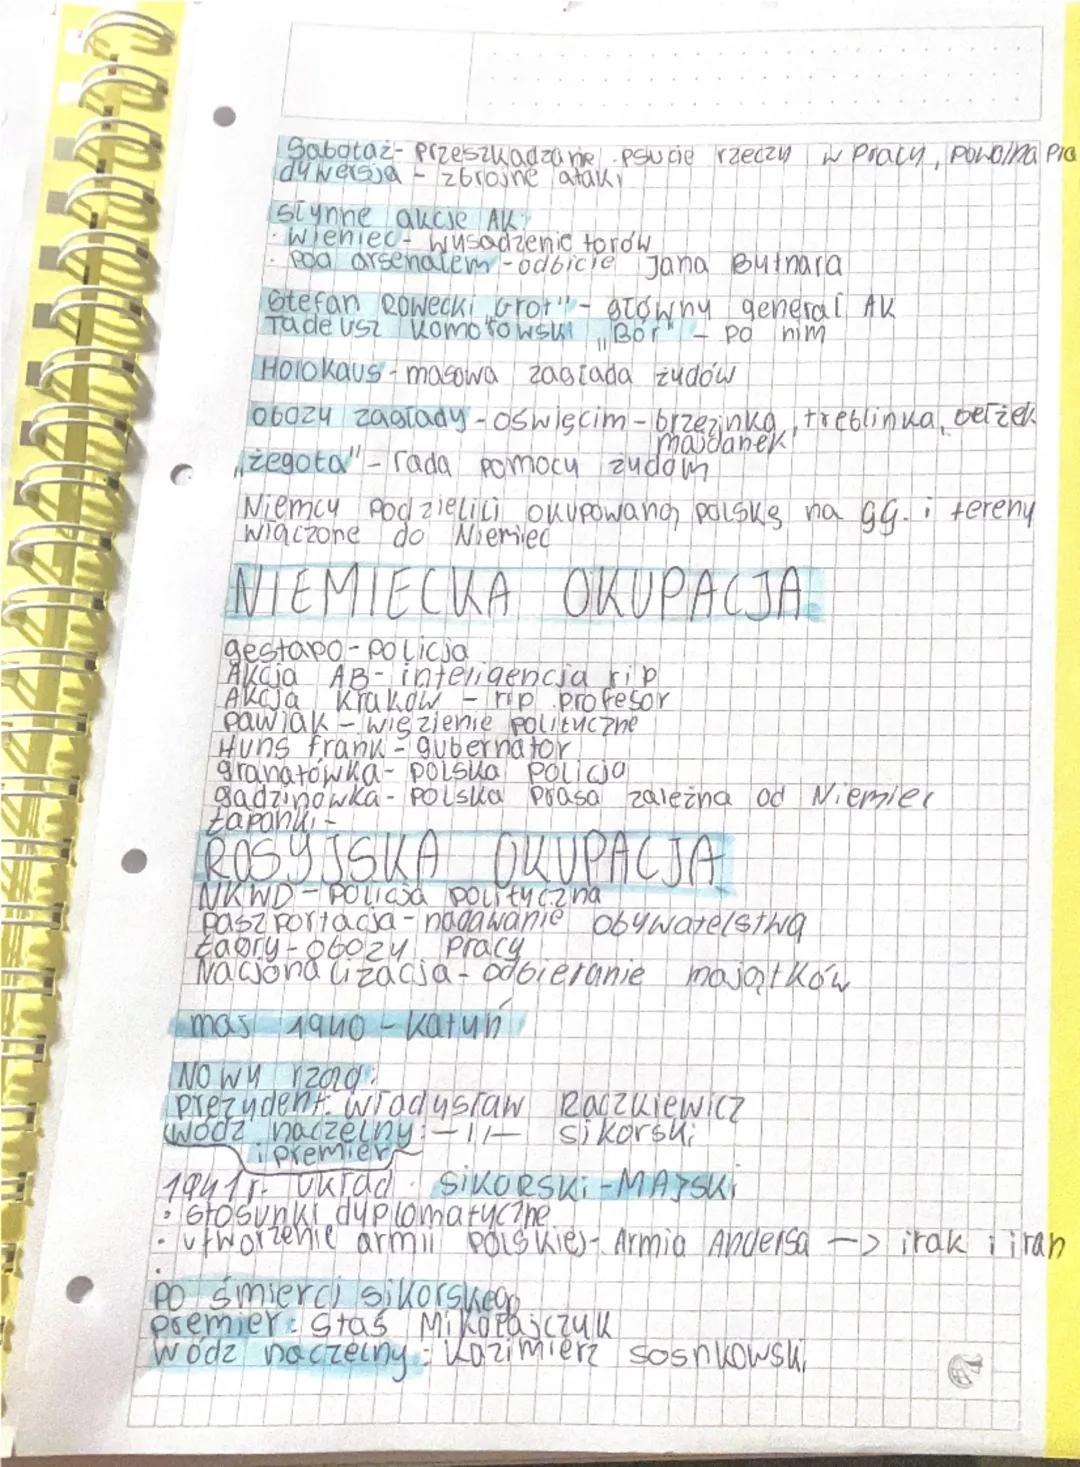 Sabotaż- przeszkadzanie, psucie rzeczy w pracy, powolna pra
dywersja - zbrojne ataki
słynne akcje AK:
· Wieniec- wysadzenie torów
· Pod arsenałem - odbicie Jana Bytnara
Stefan Rowecki „Grot" - główny generał AK
Tadeusz Komorowski „Bór" - po nim
Holokaus - masowa zagłada żydów
obozy zagłady - oświęcim - brzezinka, treblinka, bełżek
majdanek
„żegota" - rada pomocy żydom
Niemcy podzielili okupowaną polskę na gg. i tereny
włączone do Niemiec
NIEMIECKA OKUPACJA
gestapo - policja
Akcja AB - inteligencja rip
Akcja Kraków - rip profesor
pawiak - więzienie polityczne
Huns frank - gubernator
granatówka - polska policja
gadzinówka - polska prasa zależna od Niemiec
Łapanki -
ROSYJSKA OKUPACJA
NKWD - policja polityczna
paszportacja - nadawanie obywatelstwa
Łagry - obozy pracy
Nacjonalizacja - odbieranie majątków
maj 1940 - Katyń
Nowy rząd:
prezydent: Władysław Raczkiewicz
wódz naczelny: -||- sikorski
i premier
1941r. układ: SIKORSKI - MAJSKI
· stosunki dyplomatyczne
· utworzenie armii polskiej - Armia Andersa -> irak i iran
·
po śmierci sikorskego
premier: Staś Mikołajczuk
wódz naczelny: Kazimierz sosnkowski